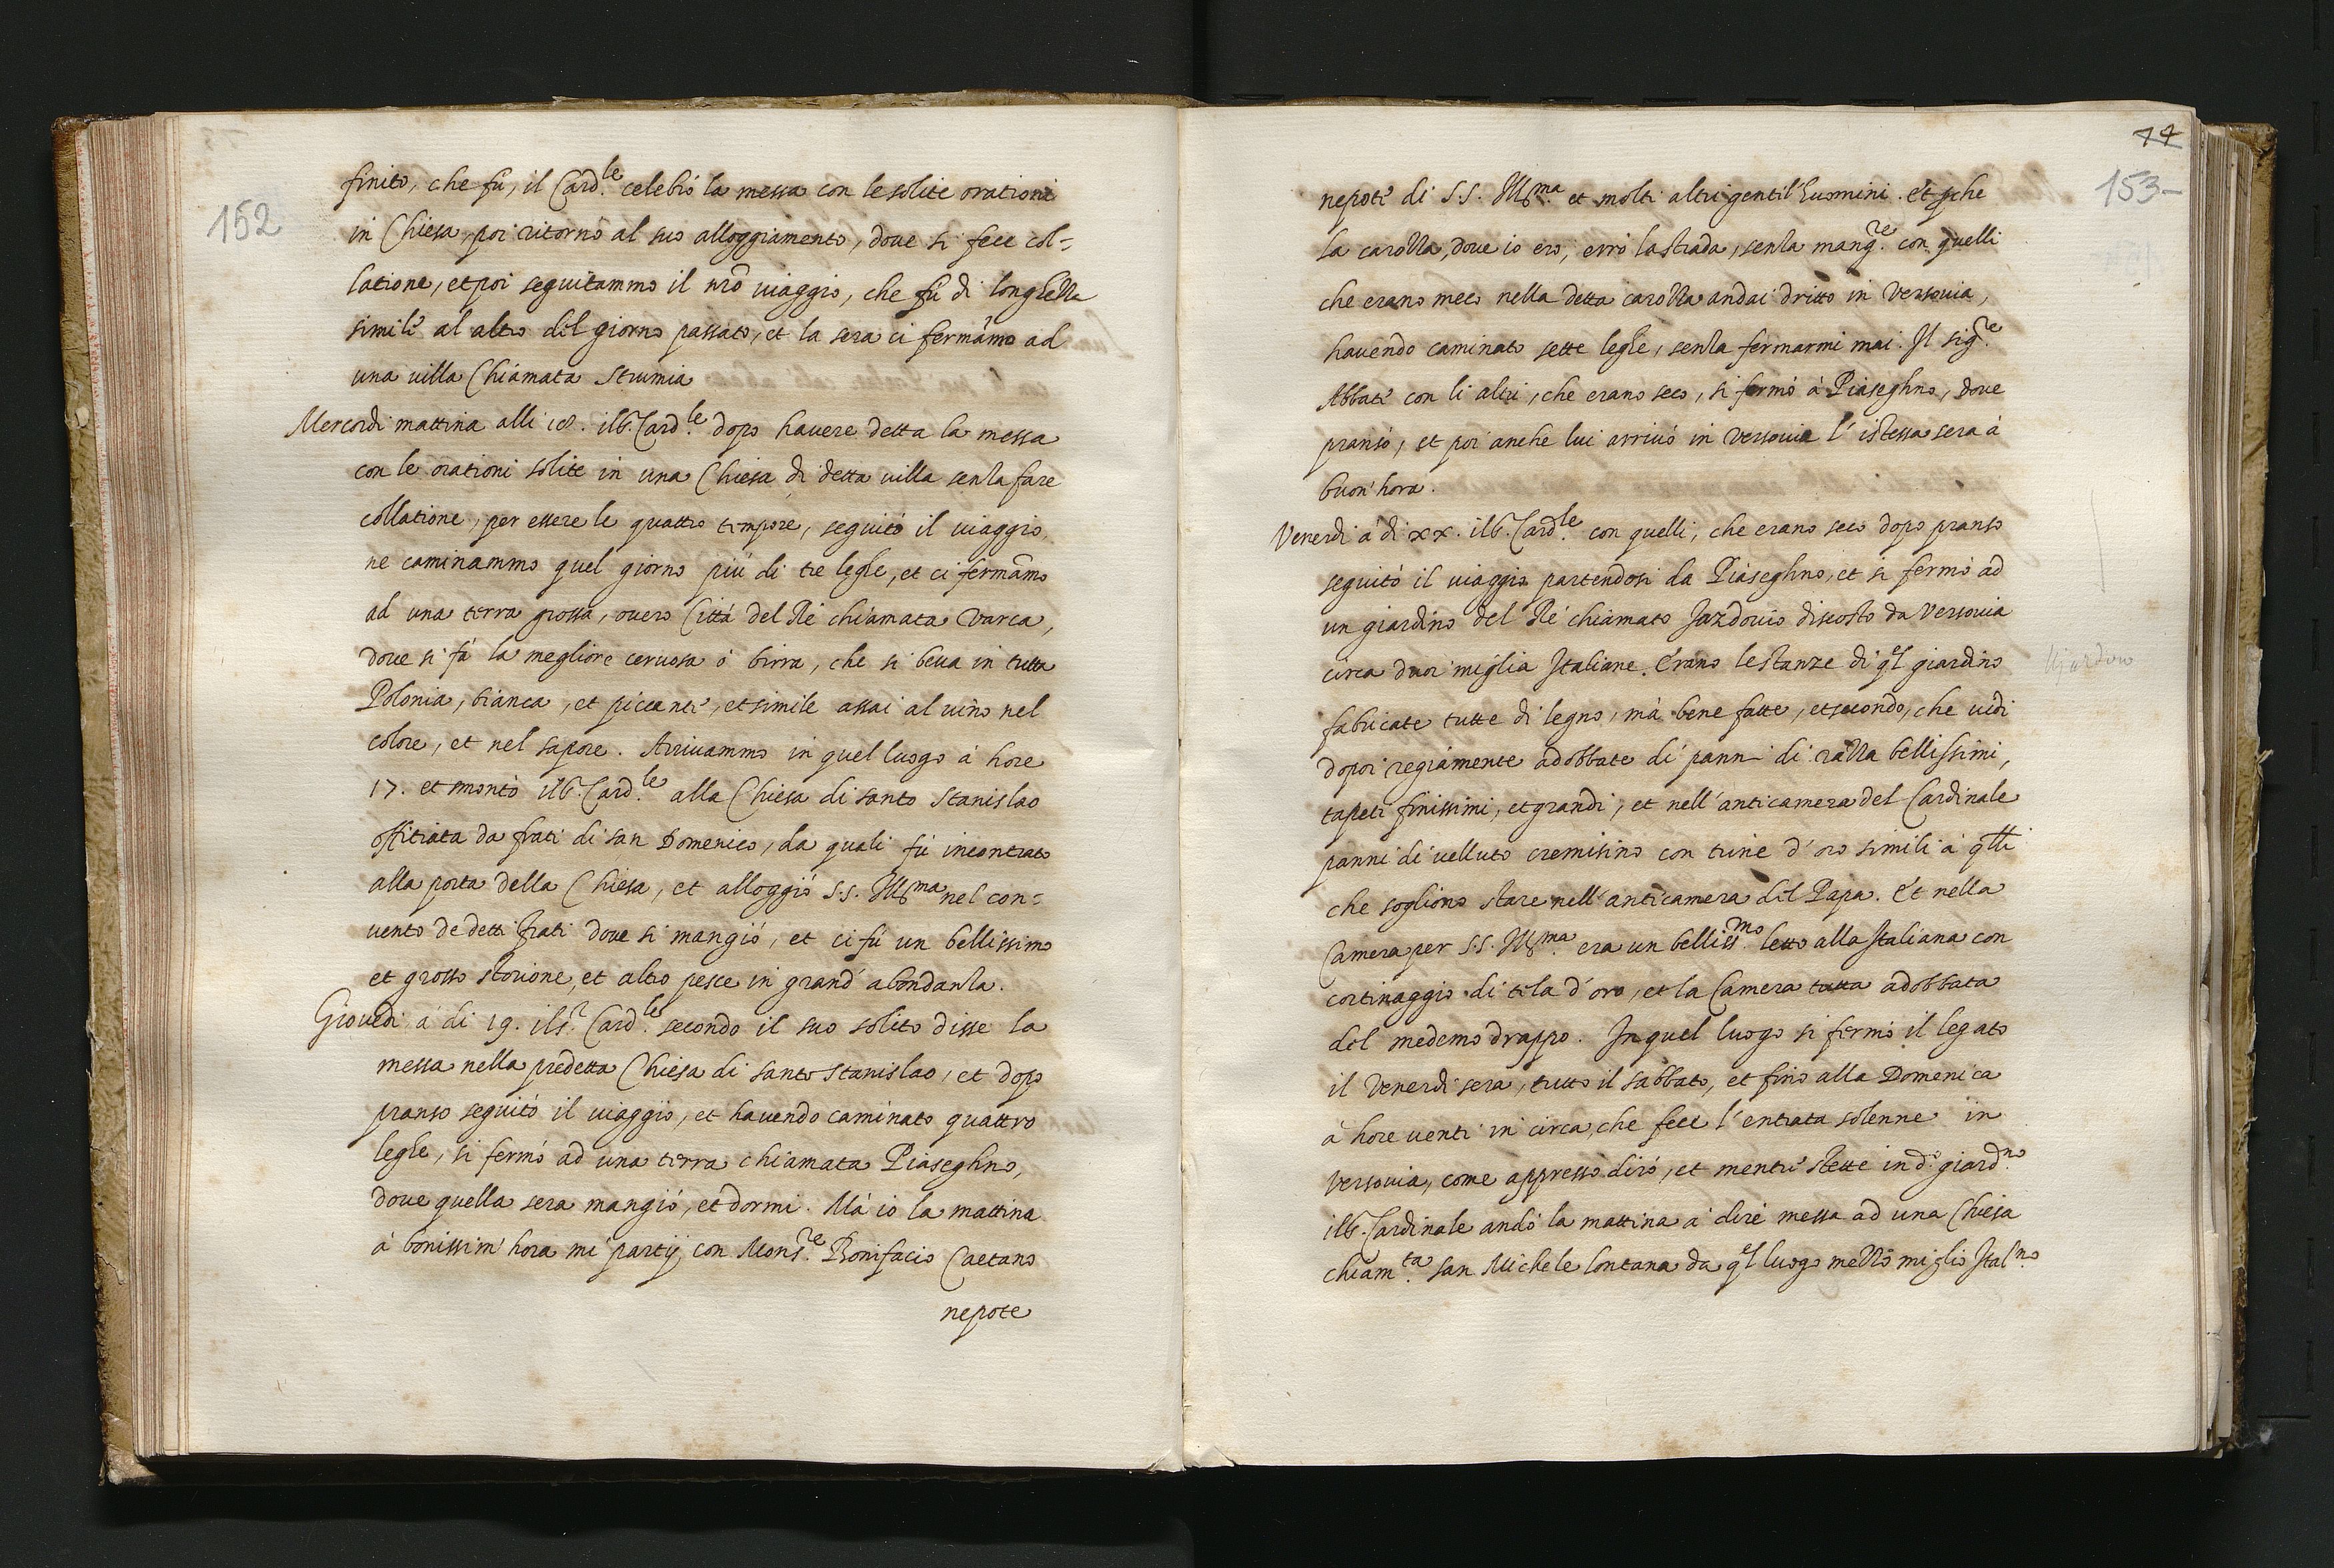 152
finito, che fù, il Card.le celebrò la messa con le solite orationi
in Chiesa, poi ritornò al suo alloggiamento, dove si fece col=
latione, et poi seguitammo il nrõ viaggio, che fù di longhezza
simile al altro del giorno passato, et la sera ci fermãmo ad
una villa Chiamata Strumia
Mercordi mattina alli 18. ilS.r Card.le dopo havere detta la messa
con le orationi solite in una Chiesa di detta villa senza fare
collatione, per essere le quattro tempore, seguitò il viaggio,
ne caminammo quel giorno più di tre leghe, et ci fermãmo
ad una terra grossa, overo Città del Rè chiamata Varca,
dove si fà la megliore cervosa ò birra, che si beva in tutta
Polonia, bianca, et piccante, et simile assai al vino nel
colore, et nel sapore. Arrivammo in quel luogo à hore
17. et montò ilS.r Card.le alla Chiesa di santo Stanislao
offitiata da frati di san Domenico, da quali fù incontrato
alla porta della Chiesa, et alloggiò S.S. Ill.ma nel con=
vento de detti frati dove si mangiò, et ci fù un bellissimo
et grosso storione, et altro pesce in grand' abondanza.
Giovedi à di 19. ilS.r Card.le secondo il suo solito disse la
messa nella predetta Chiesa di santo Stanislao, et dopo
pranso seguitò il viaggio, et havendo caminato quattro
leghe, si fermò ad una terra chiamata Piaseghno,
dove quella sera mangiò, et dormì. Mà io la mattina
à bonissim' hora mi partij con Mons.re Bonifacio Caetano
nepote
44
153
nepote di S.S. Ill.ma et molti altri gentil'huomini. Et pche
la carozza, dove io ero, errò la strada, senza mang.re con quelli
che erano meco nella detta carozza andai dritto in Versovia,
havendo caminato sette leghe, senza fermarmi mai. Il sig.re
Abbate con li altri, che erano seco, si fermò à Piaseghno, dove
pransò, et poi anche lui arrivò in Versovia l' istessa sera à
buon' hora.
Venerdi à di xx. ilS.r Card.le con quelli, che erano seco dopo pranso
seguitò il viaggio partendosi da Piaseghno, et si fermò ad
un giardino del Rè chiamato Jazdovio discosto da Versovia
circa duoi miglia Italiane. Erano le stanze di ql giardino
fabricate tutte di legno, mà bene fatte, et secondo, che vidi
dopoi regiamente adobbate di panni di razza bellissimi,
tapeti finissimi, et grandi, et nell' anticamera del Cardinale
panni di velluto cremisino con trine d' oro simili à qlli
che sogliono stare nell' anticamera del Papa. Et nella
Camera per S.S. Ill.ma era un belliss.mo letto alla Italiana con
cortinaggio di tela d' oro, et la Camera tutta adobbata
del medemo drappo. In quel luogo si fermò il legato
il Venerdi sera, tutto il sabbato, et fino alla Domenica
à hore venti in circa, che fece l' entrata solenne in
Versovia, come appresso dirò, et mentre stette in d.o giard.no
ilS.r Cardinale andò la mattina à dire messa ad una Chiesa
chiam.ta san Michele lontana da ql luogo mezzo miglio Ital.no